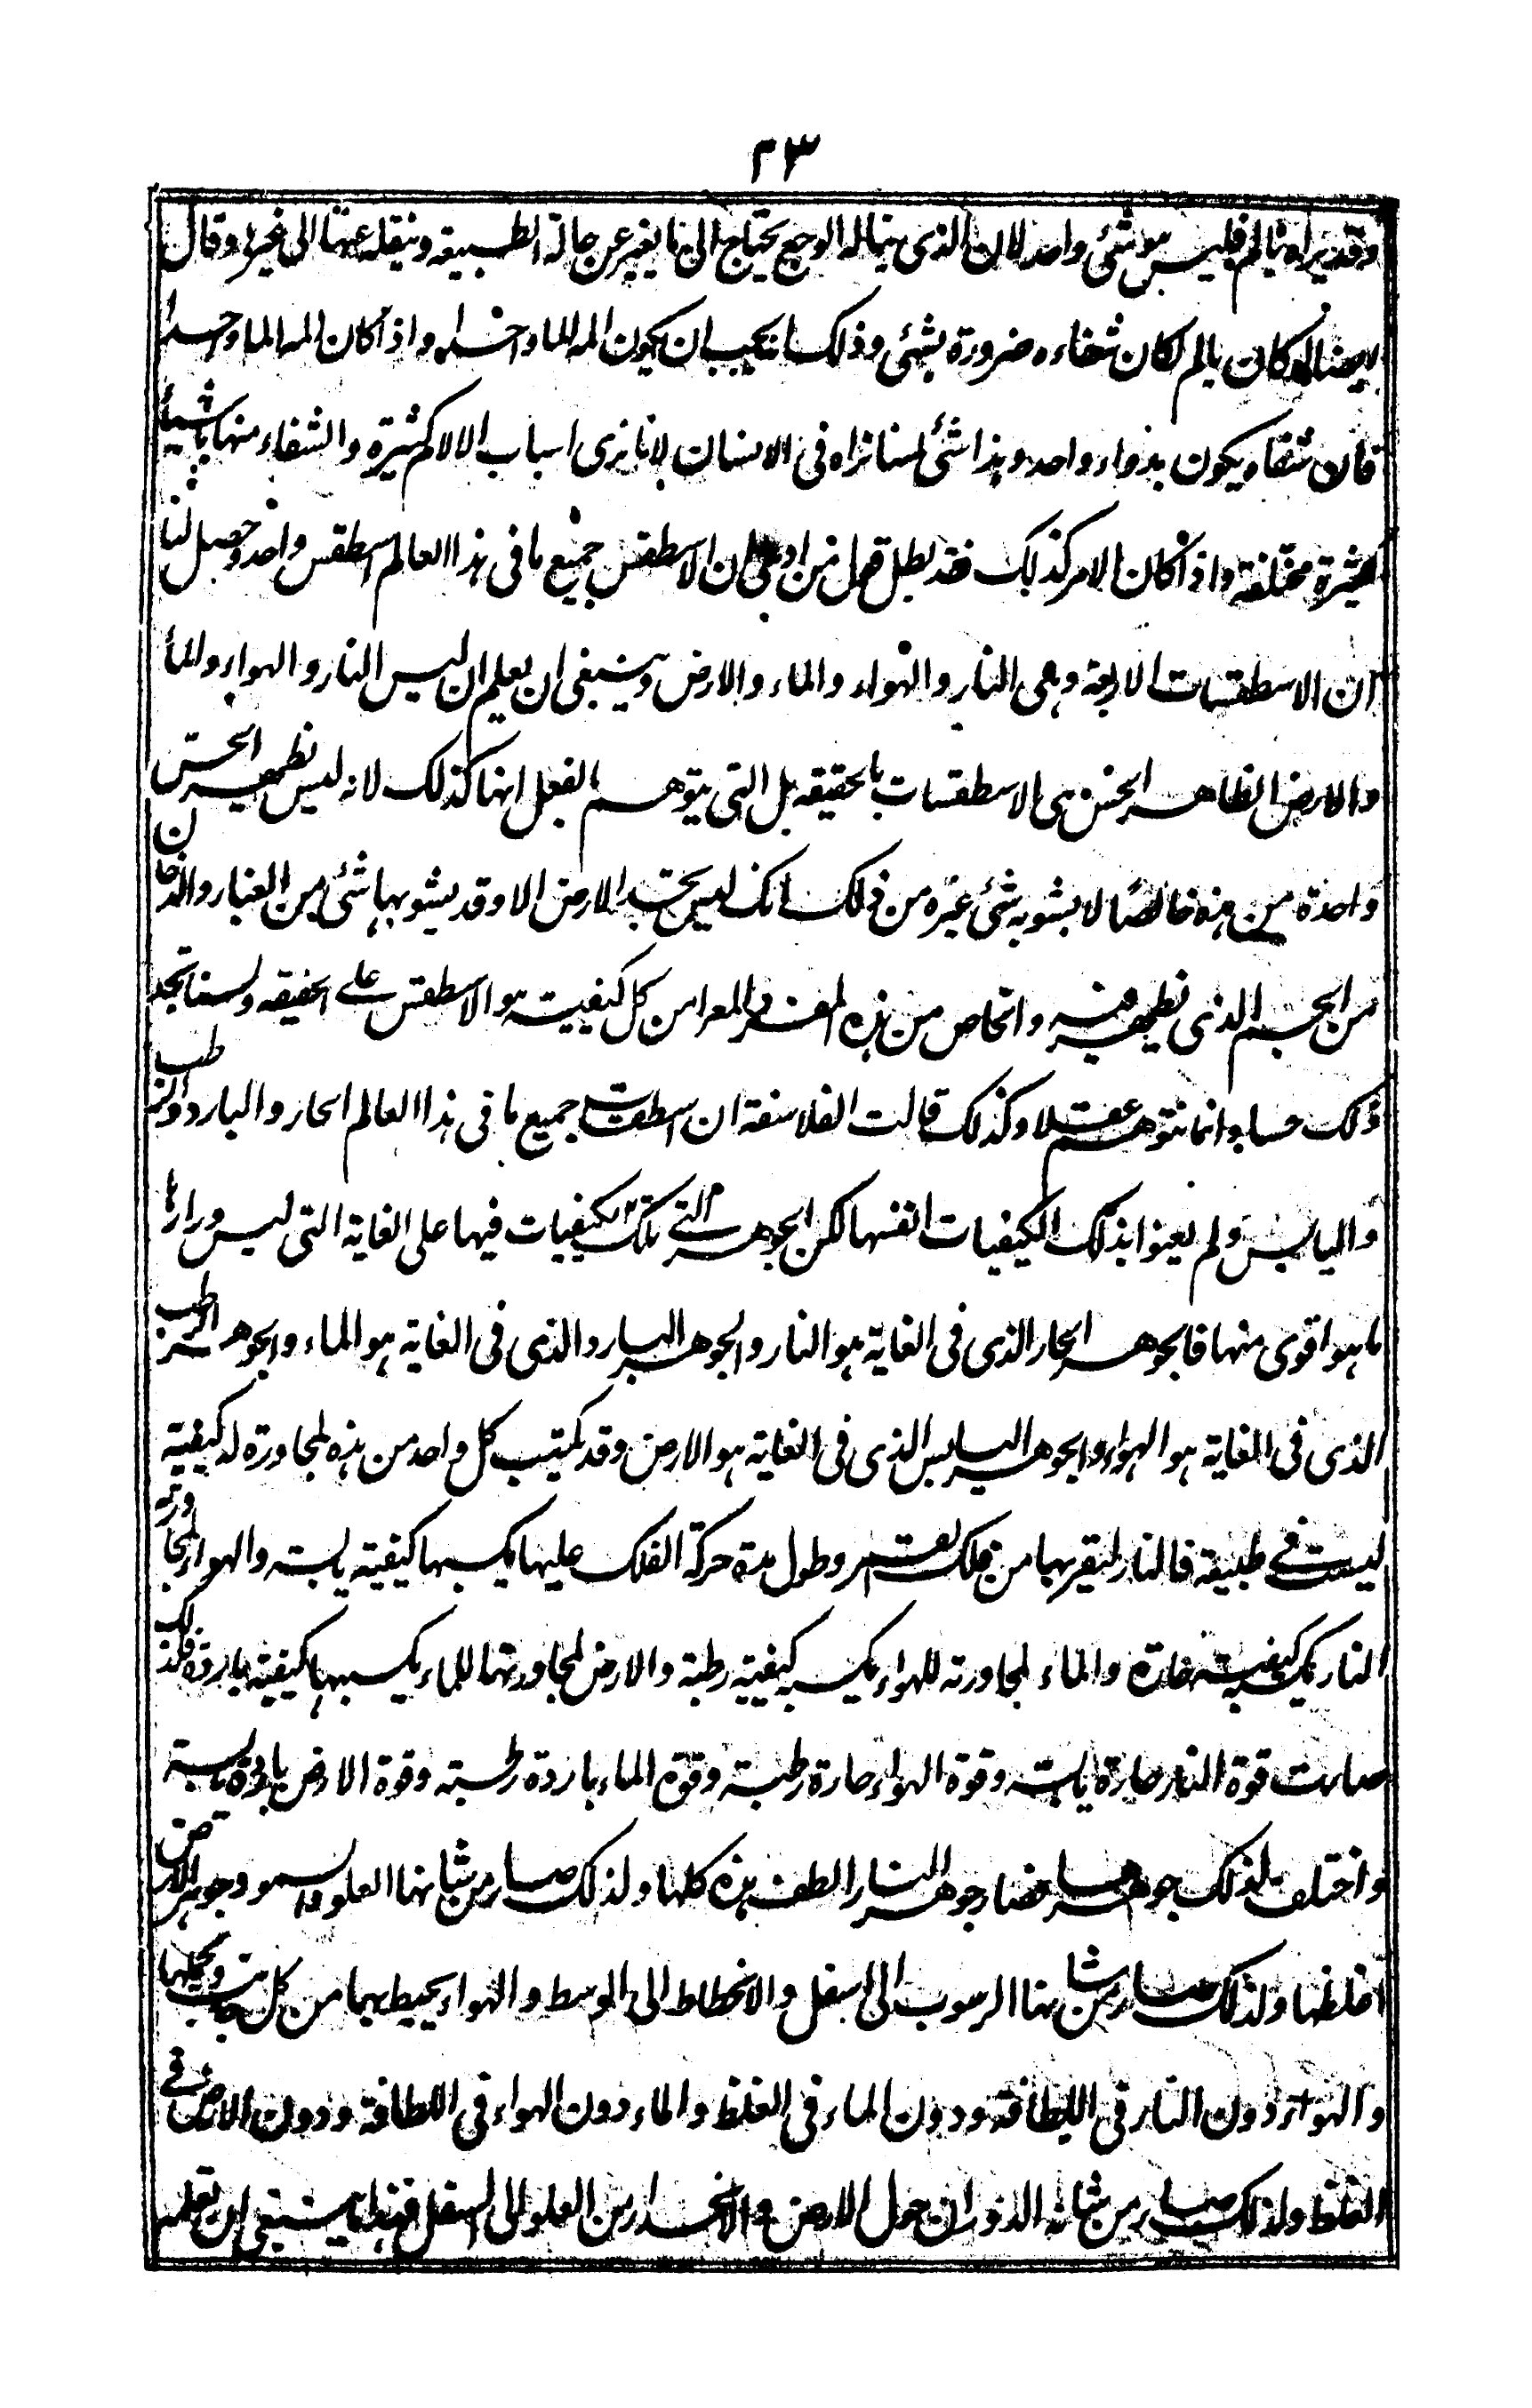 ٢٣
وقد نراه يالم فليس هو شئى واحد لان الذى يناله الوجع يحتاج الى ما يغيره عن حالة الطبيعية وينقله عنها الى غيرها وقال
ايضا لو كان يالم لكان شفاءه ضرورة بشئى وذلك انه يجب ان يكون المه الما واحدا واذا كان المه الما واحدا
فان شفاه يكون بدواء واحد وهذا شئى لسنا نراه فى الانسان لانا نرى اسباب الالام كثيرة والشفاء منها باشياء
كثيرة مختلفة واذا كان الامر كذلك فقد بطل قول من ادعى ان الاسطقس جميع ما فى هذا العالم اسطقس واحد وحصل لنا
ان الاسطقسات الاربعة وهى النار والهواء والماء والارض وينبغى ان يعلم ان ليس النار والهواء والماء
والارض الظاهر الحس هى الاسطقسات بالحقيقه بل التى يتوهم الفعل انها كذلك لانه ليس يظهر الحس
واحدة من هذه خالصًا لا يشوبه شئى غيره من ذلك انك ليس تجد الارض الا وقد يشوبها شئى من الغبار والدخان
من الجسم الذى يظهر فيه والخاص من هذه المفرد المعرا من كل كيفيية هو الاسطقس على الحقيقه ولسنا نجد
ذلك حسا وانما نتوهم عقلا وكذلك قالت الفلاسفة ان اسطقسات جميع ما فى هذا العالم الحار والبارد والرطب
واليابس ولم يعنوا بذلك الكيفيات انفسها لكن الجوهر التى تلك الكيفيات فيها على الغاية التى ليس ورارها
ما هو اقوى منها فالجوهر الحار الذى فى الغاية هو النار والجوهر البارد الذى فى الغاية هو الماء والجوهر الرطب
الذى فى الغاية هو الهواء والجوهر اليابس الذى فى الغاية هو الارض وقد يكتسب كل واحد من هذه لمجاورة له كيفية
ليست فى طبيعة فالنار لقربها من فلك القمر وطول مدة حركة الفلك عليها يكسبها كيفية يابسة والهواء لمجاورته
النار يكسبه كيفية حارة والماء لمجاورته للهواء يكسبه كيفية رطبة والارض لمجاورتها للماء يكسبها كيفية باردة فلذلك
صارت قوة النار حارة يابسة وقوة الهواء حارة رطبة وقوة الماء باردة رطبة وقوة الارض باردة يابسة
واختلف لذلك جوهرها فصار جوهر النار الطف هذه كلها ولذلك صار من شانها العلو والسمو وجوهر الارض
اغلظها ولذلك صار من شانها الرسوب الى اسفل والانحطاط الى الوسط والهواء يحيط بهما من كل جانب
والهواء دون النار فى اللطافة ودون الماء فى الغلظ والماء دون الهواء فى اللطافة ودون الارض فى
الغلظ ولذلك صار من شانه الدوران حول الارض والانحدار من العلو الى اسفل فهذا ينبغى ان تعلم